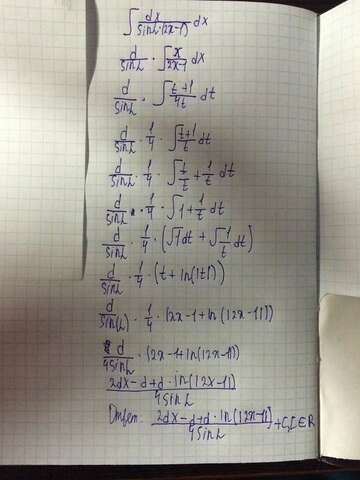 ∫ dx/(sin L·(2x-1)) dx
d/sin L · ∫ x/(2x-1) dx
d/sin L · ∫ (t+1)/(4t) dt
d/sin L · 1/4 · ∫ (t+1)/t dt
d/sin L · 1/4 · ∫ t/t + 1/t dt
d/sin L · 1/4 · ∫ 1 + 1/t dt
d/sin L · 1/4 · (∫ 1 dt + ∫ 1/t dt)
d/sin L · 1/4 · (t + ln(|t|))
d/sin(L) · 1/4 · (2x-1+ln(|2x-1|))
d/(4 sin L) · (2x-1+ln(|2x-1|))
(2dx-d+d·ln(|2x-1|))/(4 sin L)
Ответ: (2dx-d+d·ln(|2x-1|))/(4 sin L) + C, C∈R